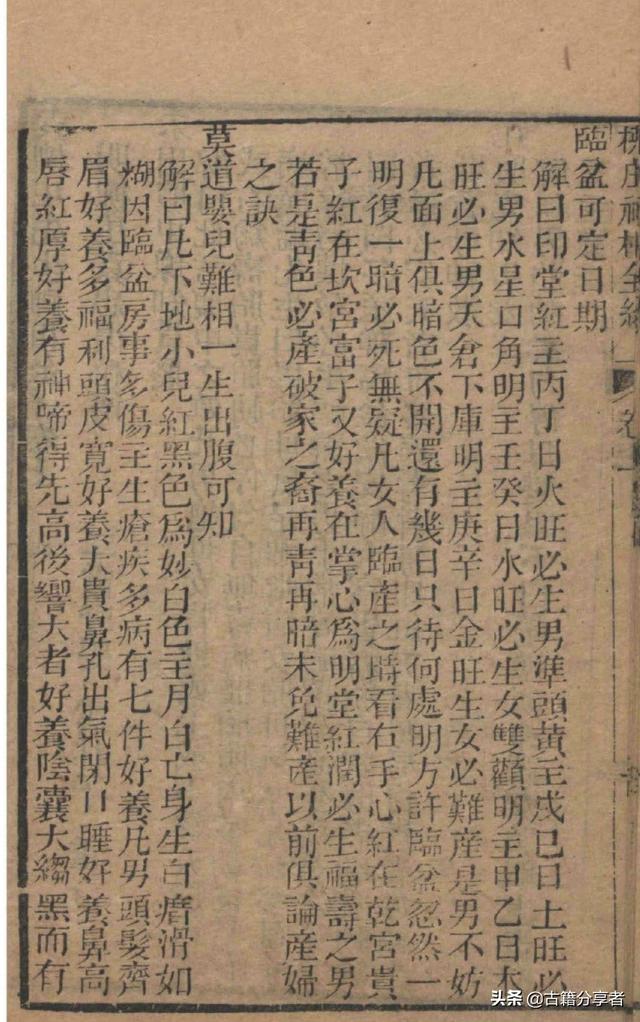 臨盆可定日期
解曰印堂紅主丙丁日火旺必生男準頭黃主戊巳日土旺必
生男水星口角明主壬癸日水旺必生女雙顴明主甲乙日木
旺必生男天倉下庫明主庚辛日金旺生女必難産是男不妨
凡面上俱暗色不開還有幾日只待何處明方許臨盆忽然一
明復一暗必死無疑凡女人臨產之時看右手心紅在乾宮貴
子紅在坎宮富子又好養在掌心為明堂紅潤必生福壽之男
若是靑色必產破家之裔再靑再暗未免難產以前俱論産婦
之訣
莫道嬰兒難相一生出腹可知
解曰凡下地小兒紅黑色爲妙白色主月白亡身生白㾪滑如
糊因臨盆房事多傷主生瘡疾多病有七件好養凡男頭髮齊
眉好養多福利頭皮寬好養大貴鼻孔出氣閉口睡好養鼻高
唇紅厚好養有神啼得先高後響大者好養陰囊大縐黑而有
头条 @古籍分享者